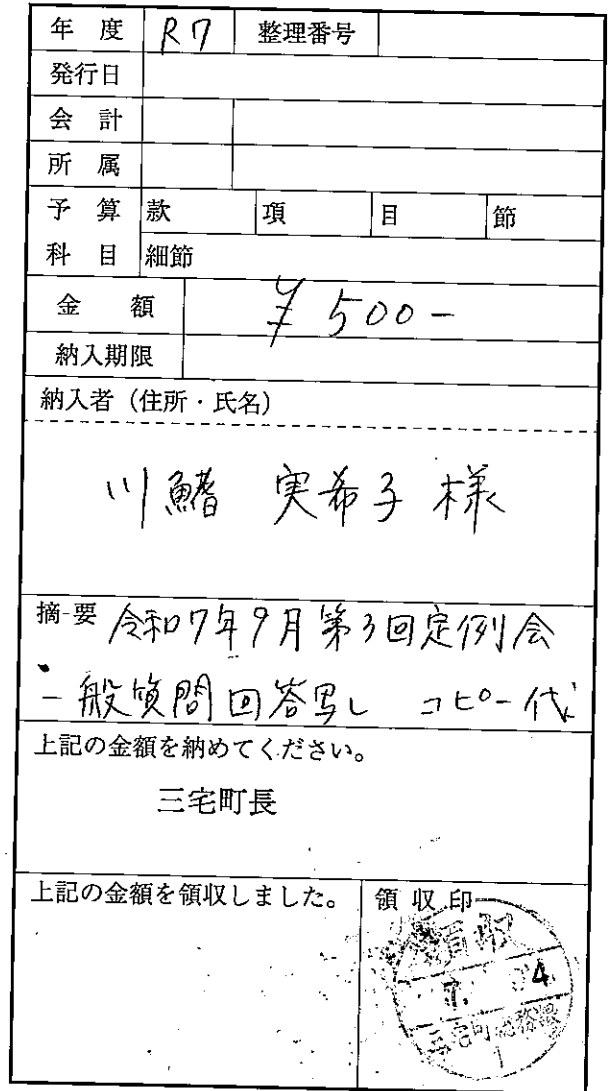 年度 R7 整理番号
発行日
会計
所属
予算 款 項 目 節
科目 細節
金額 ¥500-
納入期限
納入者（住所・氏名）
川鰭 実希子 様
摘要 令和7年9月第3回定例会
一般質問回答写し コピー代
上記の金額を納めてください。
三宅町長
上記の金額を領収しました。 領収印
領収
7. 4
三宅町総務課